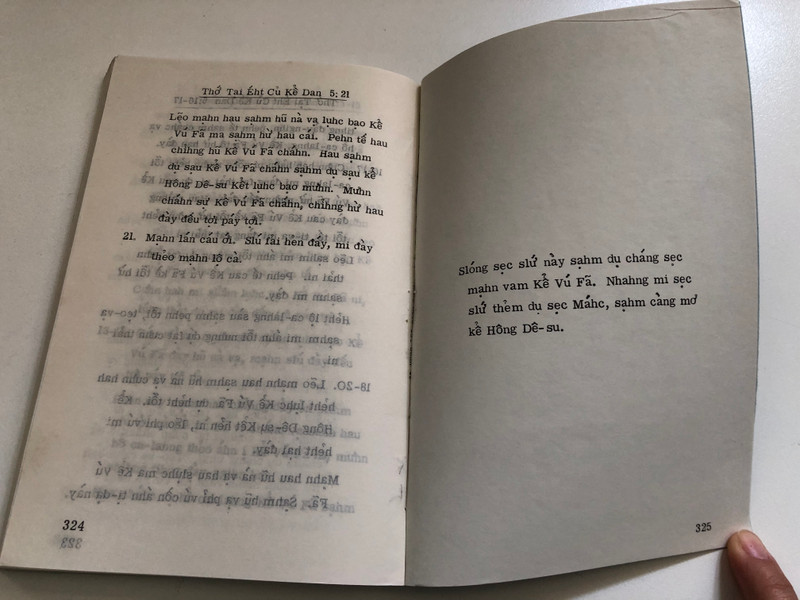 Thớ Tai Éht Củ Kề Dan 5: 21
Lẽo mạhn hau sạhm hũ nả vạ lụhc bao Kề
Vú Fã ma sạhm hử hau cái. Pehn tể hau
chíhng hũ Kề Vú Fã cháhn. Hau sạhm
dụ sạu Kề Vú Fã cháhn sạhm dụ sạu kề
Hông Dê-su Kết lụhc bao mưhn. Mưhn
cháhn sự Kề Vú Fã cháhn, chíhng hử hau
đày đều tời páy tợi.
21. Mạhn lán cáu ới. Slú fai hen đấy, mi đày
thẻo mạhn lộ cà.
324
Slóng sẹc slử này sạhm dụ cháng sẹc
mạhn vam Kề Vú Fã. Nhahng mi sẹc
slử thẻm dụ sẹc Máhc, sạhm càng mơ
kề Hông Dê-su.
325